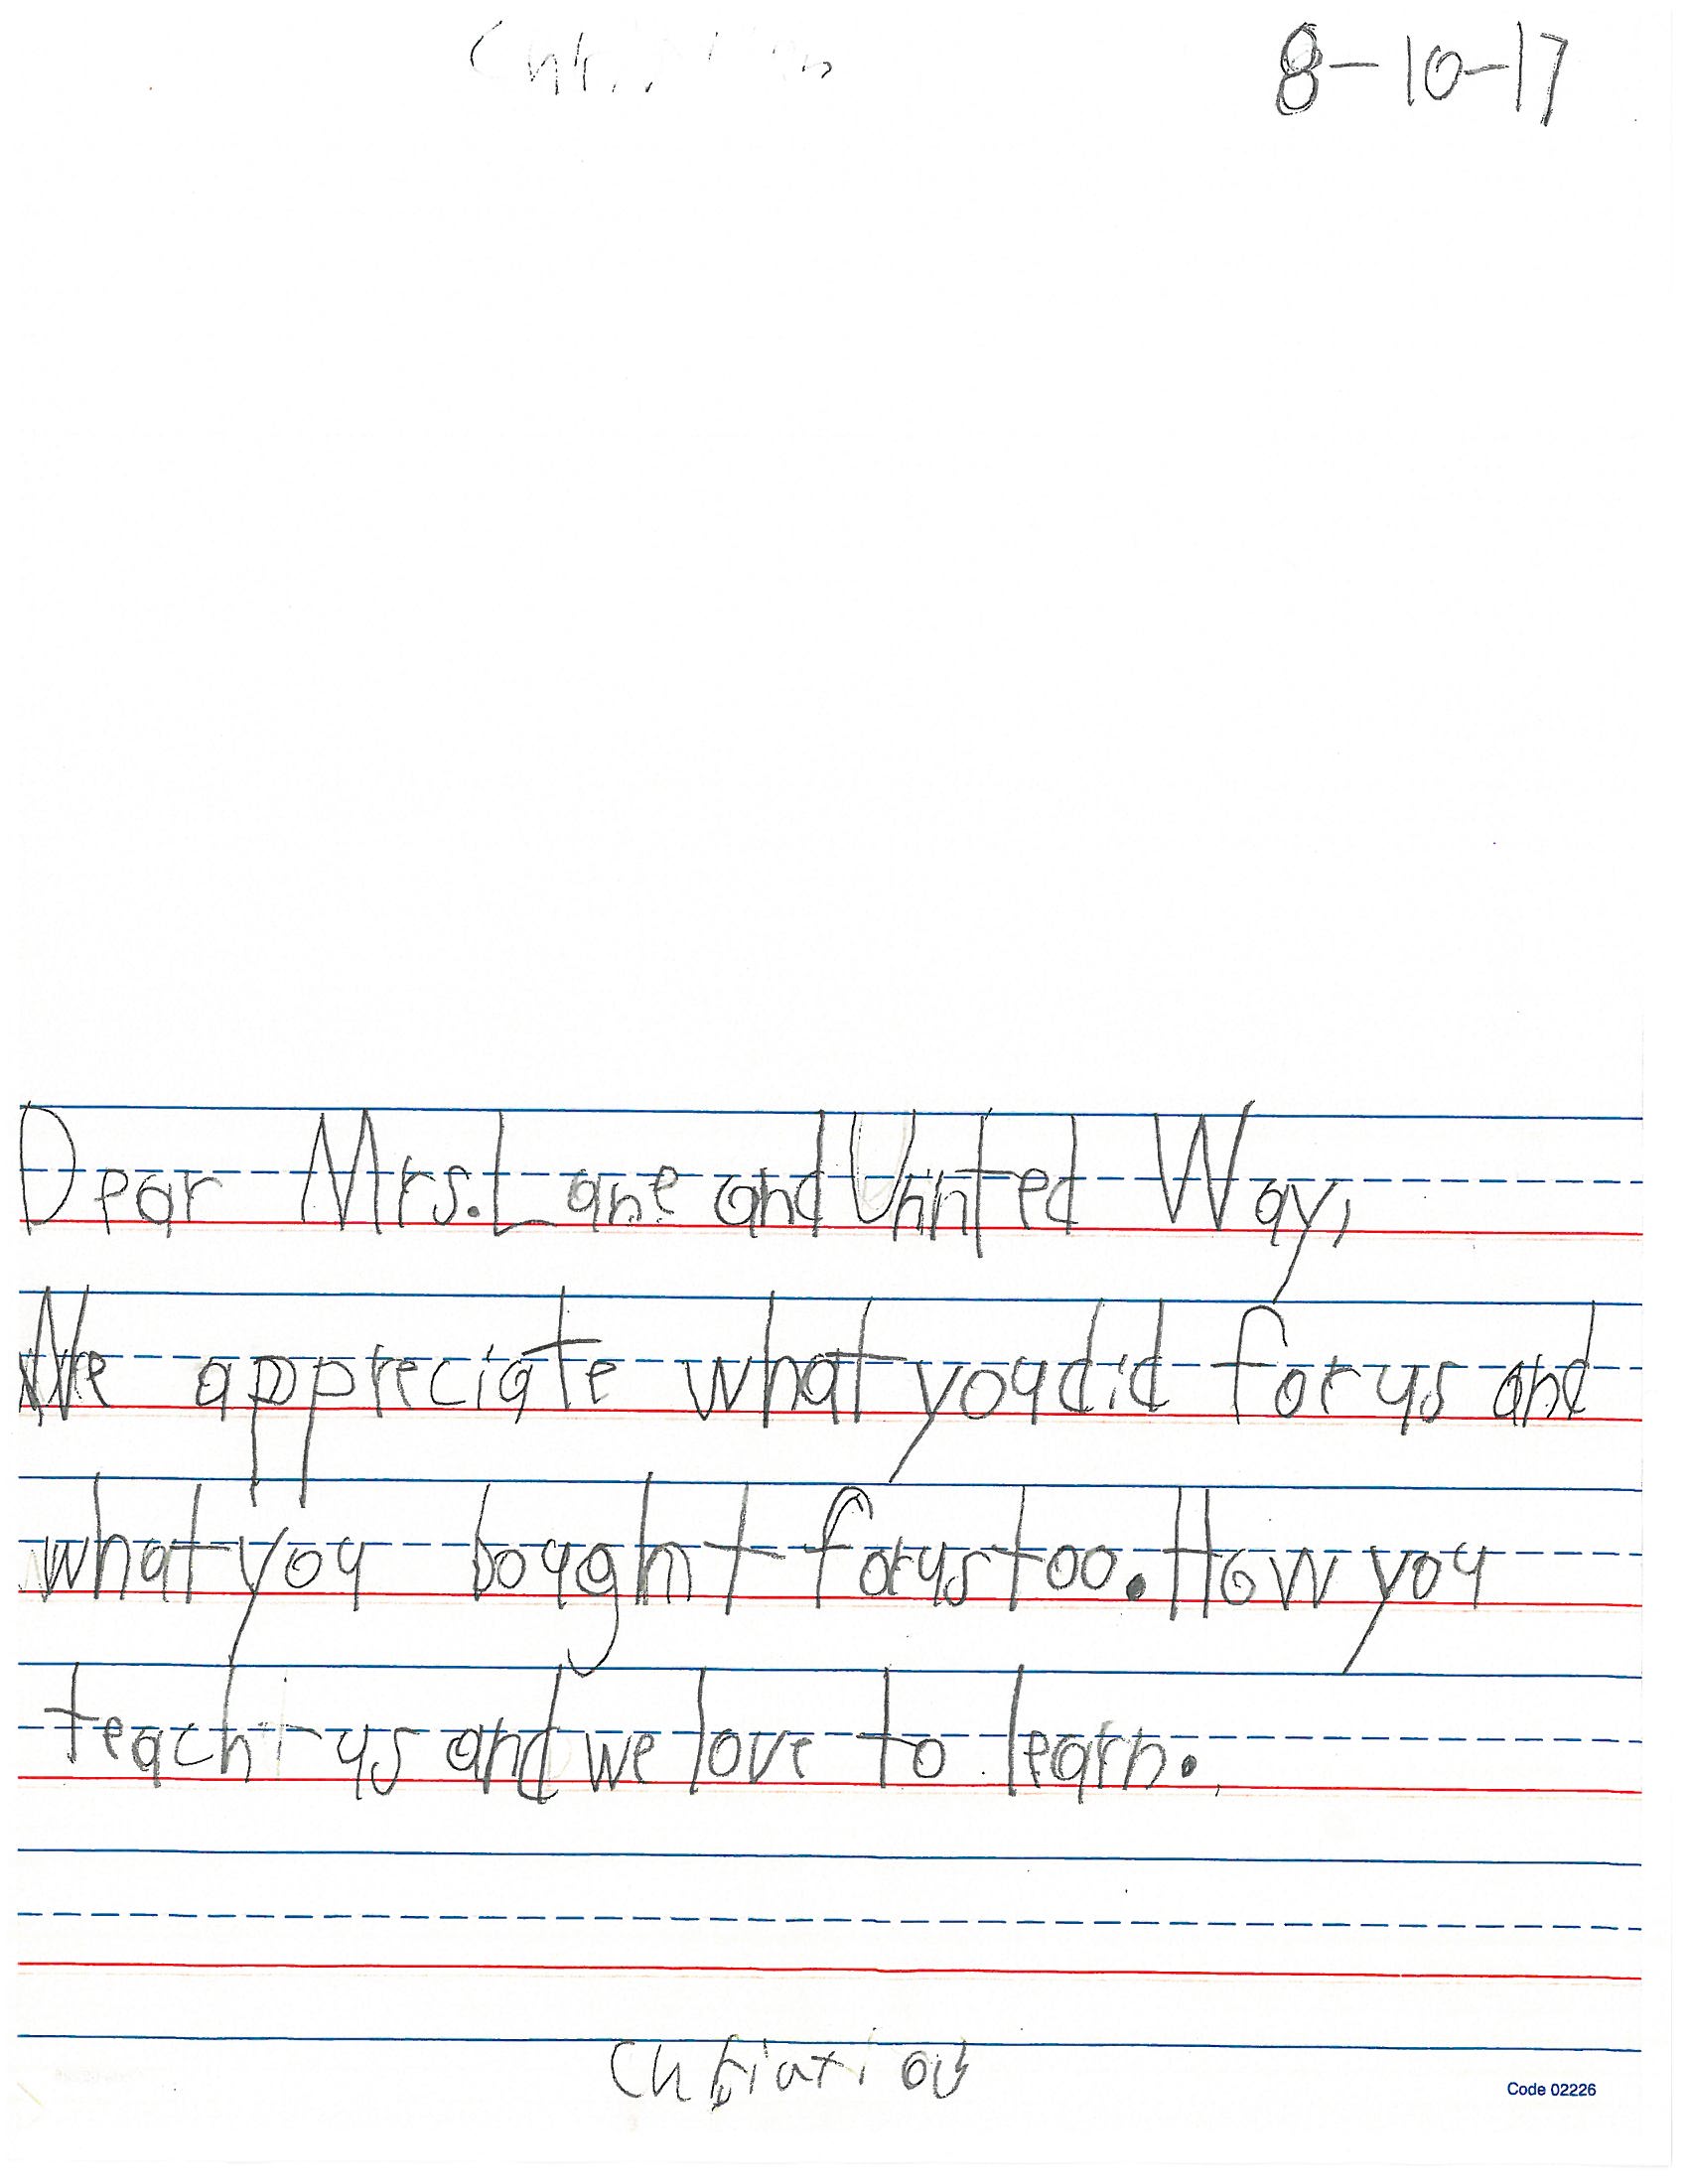 8-10-17
Dear Mrs. Lane and Unnted Way,
We appreciate what you did for us and
what you bought for us too. How you
teach us and we love to learn.
Code 02226